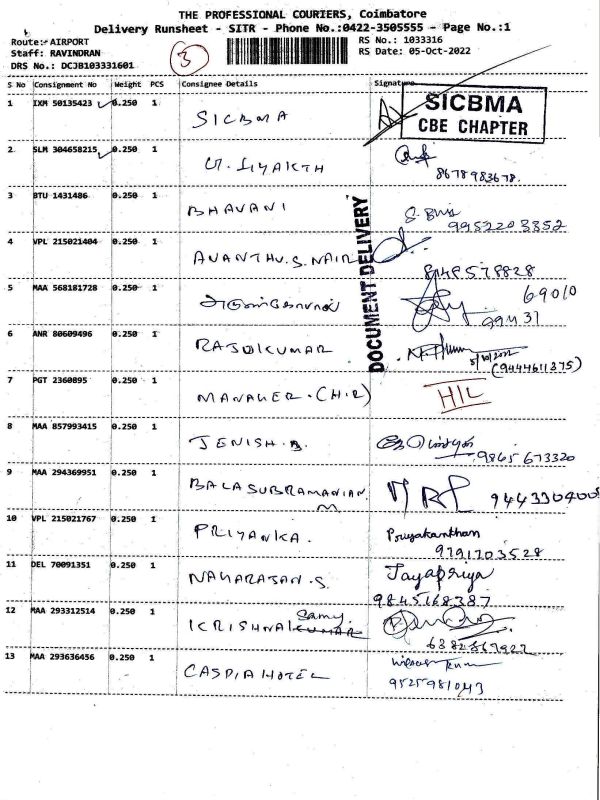 THE PROFESSIONAL COURIERS, Coimbatore
Delivery Runsheet - SITR - Phone No.:0422-3505555 - Page No.:1
Route: AIRPORT
Staff: RAVINDRAN
DRS No.: DCJB103331601
3
RS No.: 1033316
RS Date: 05-Oct-2022
S No Consignment No Weight PCS Consignee Details Signature
1 IXM 50135423 0.250 1 SICBMA
SICBMA
CBE CHAPTER
2 SLM 304658215 0.250 1
8678983678.
3 BTU 1431486 0.250 1 BHAVANI
9952203852
DOCUMENT DELIVERY
4 VPL 215021404 0.250 1 AVANTHU.S.NAIR
8148578828
5 MAA 568181728 0.250 1 அருண்கோபால்
69010
99431
6 ANR 80609496 0.250 1 RAJQIKUMAR
5/10/2022
(9444611375)
7 PGT 2360895 0.250 1 MANAGER.(H.R)
HIL
8 MAA 857993415 0.250 1 JENISH.B.
9865673320
9 MAA 294369951 0.250 1 BALASUBRAMANIAN.
M
944330400
10 VPL 215021767 0.250 1 PRIYANKA.
Priyakanthan
9791703528
11 DEL 70091351 0.250 1 NAGARAJAN.S.
Jayapriya
9845168387
12 MAA 293312514 0.250 1 KRISHNA samy
6382867922
13 MAA 293636456 0.250 1 CASPIA HOTEL
9525981043